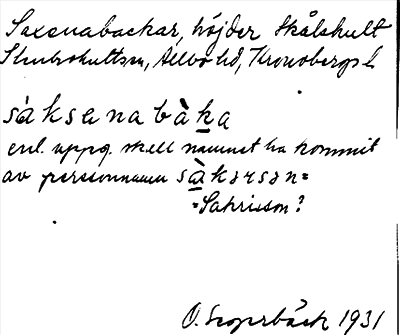 Saxenabackar, höjder Skålshult
Stenbrohults sn, Allbo hd, Kronobergs l
sàksenabàka
enl. uppg. skall namnet ha kommit
av personnamn sàkərsən =
= Sakrisson?
O. 1931